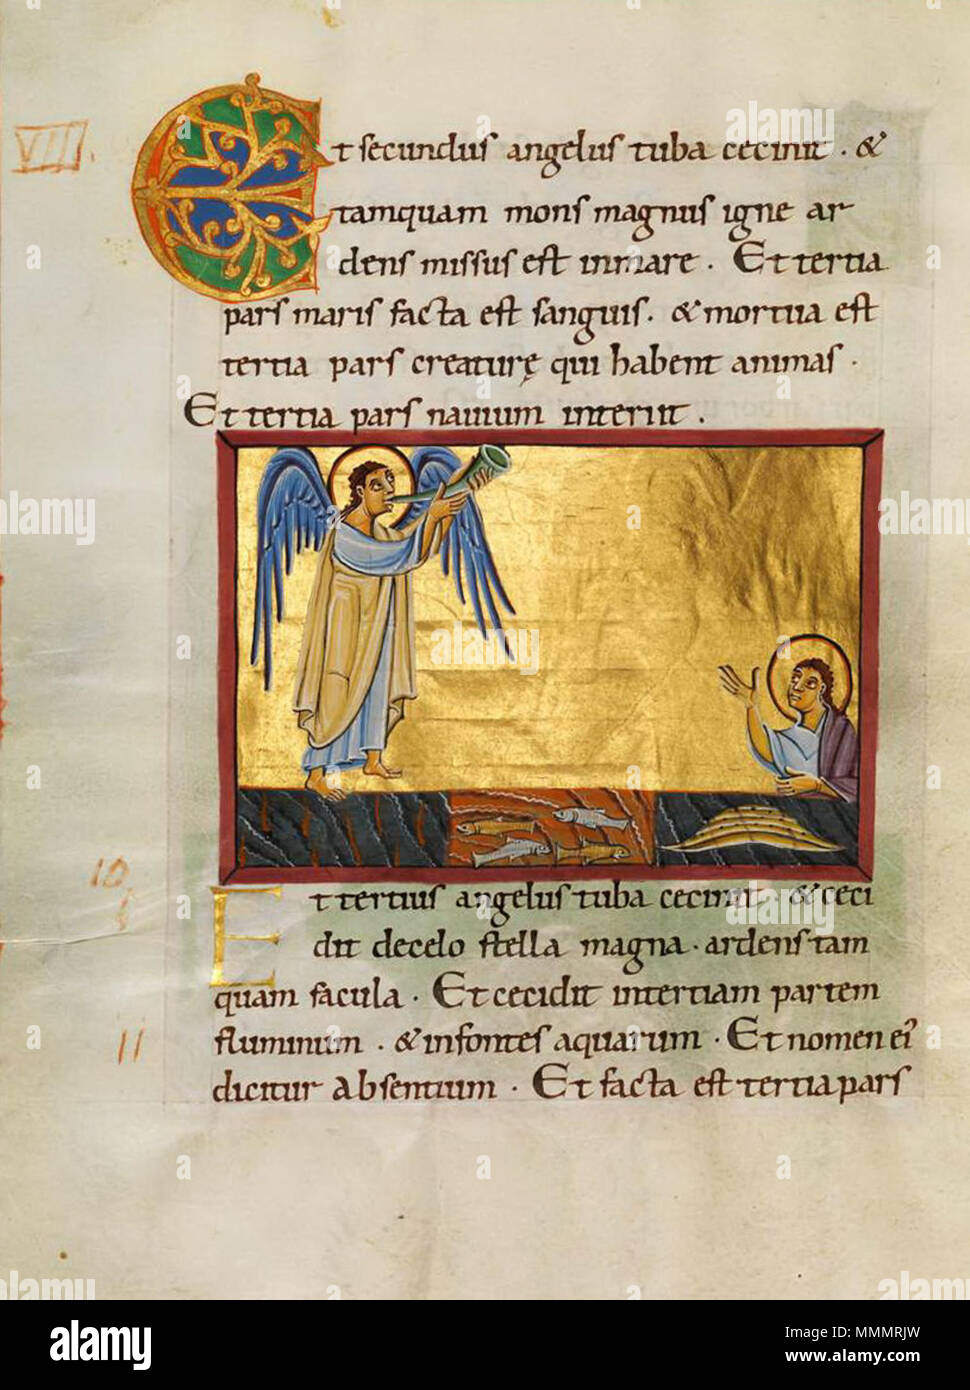 VIII.
Et secundus angelus tuba cecinit . &
tamquam mons magnus igne ar
dens missus est inmare . Et tertia
pars maris facta est sanguis . & mortua est
tertia pars creaturę qui habent animas .
Et tertia pars navium interiit .
Et tertius angelus tuba cecinit . & ceci
dit decelo stella magna . ardens tam
10
quam facula . Et cecidit intertiam partem
fluminum . & infontes aquarum . Et nomen ei'
11
dicitur Absentium . Et facta est tertia pars
alamy
MMMRJW
www.alamy.com